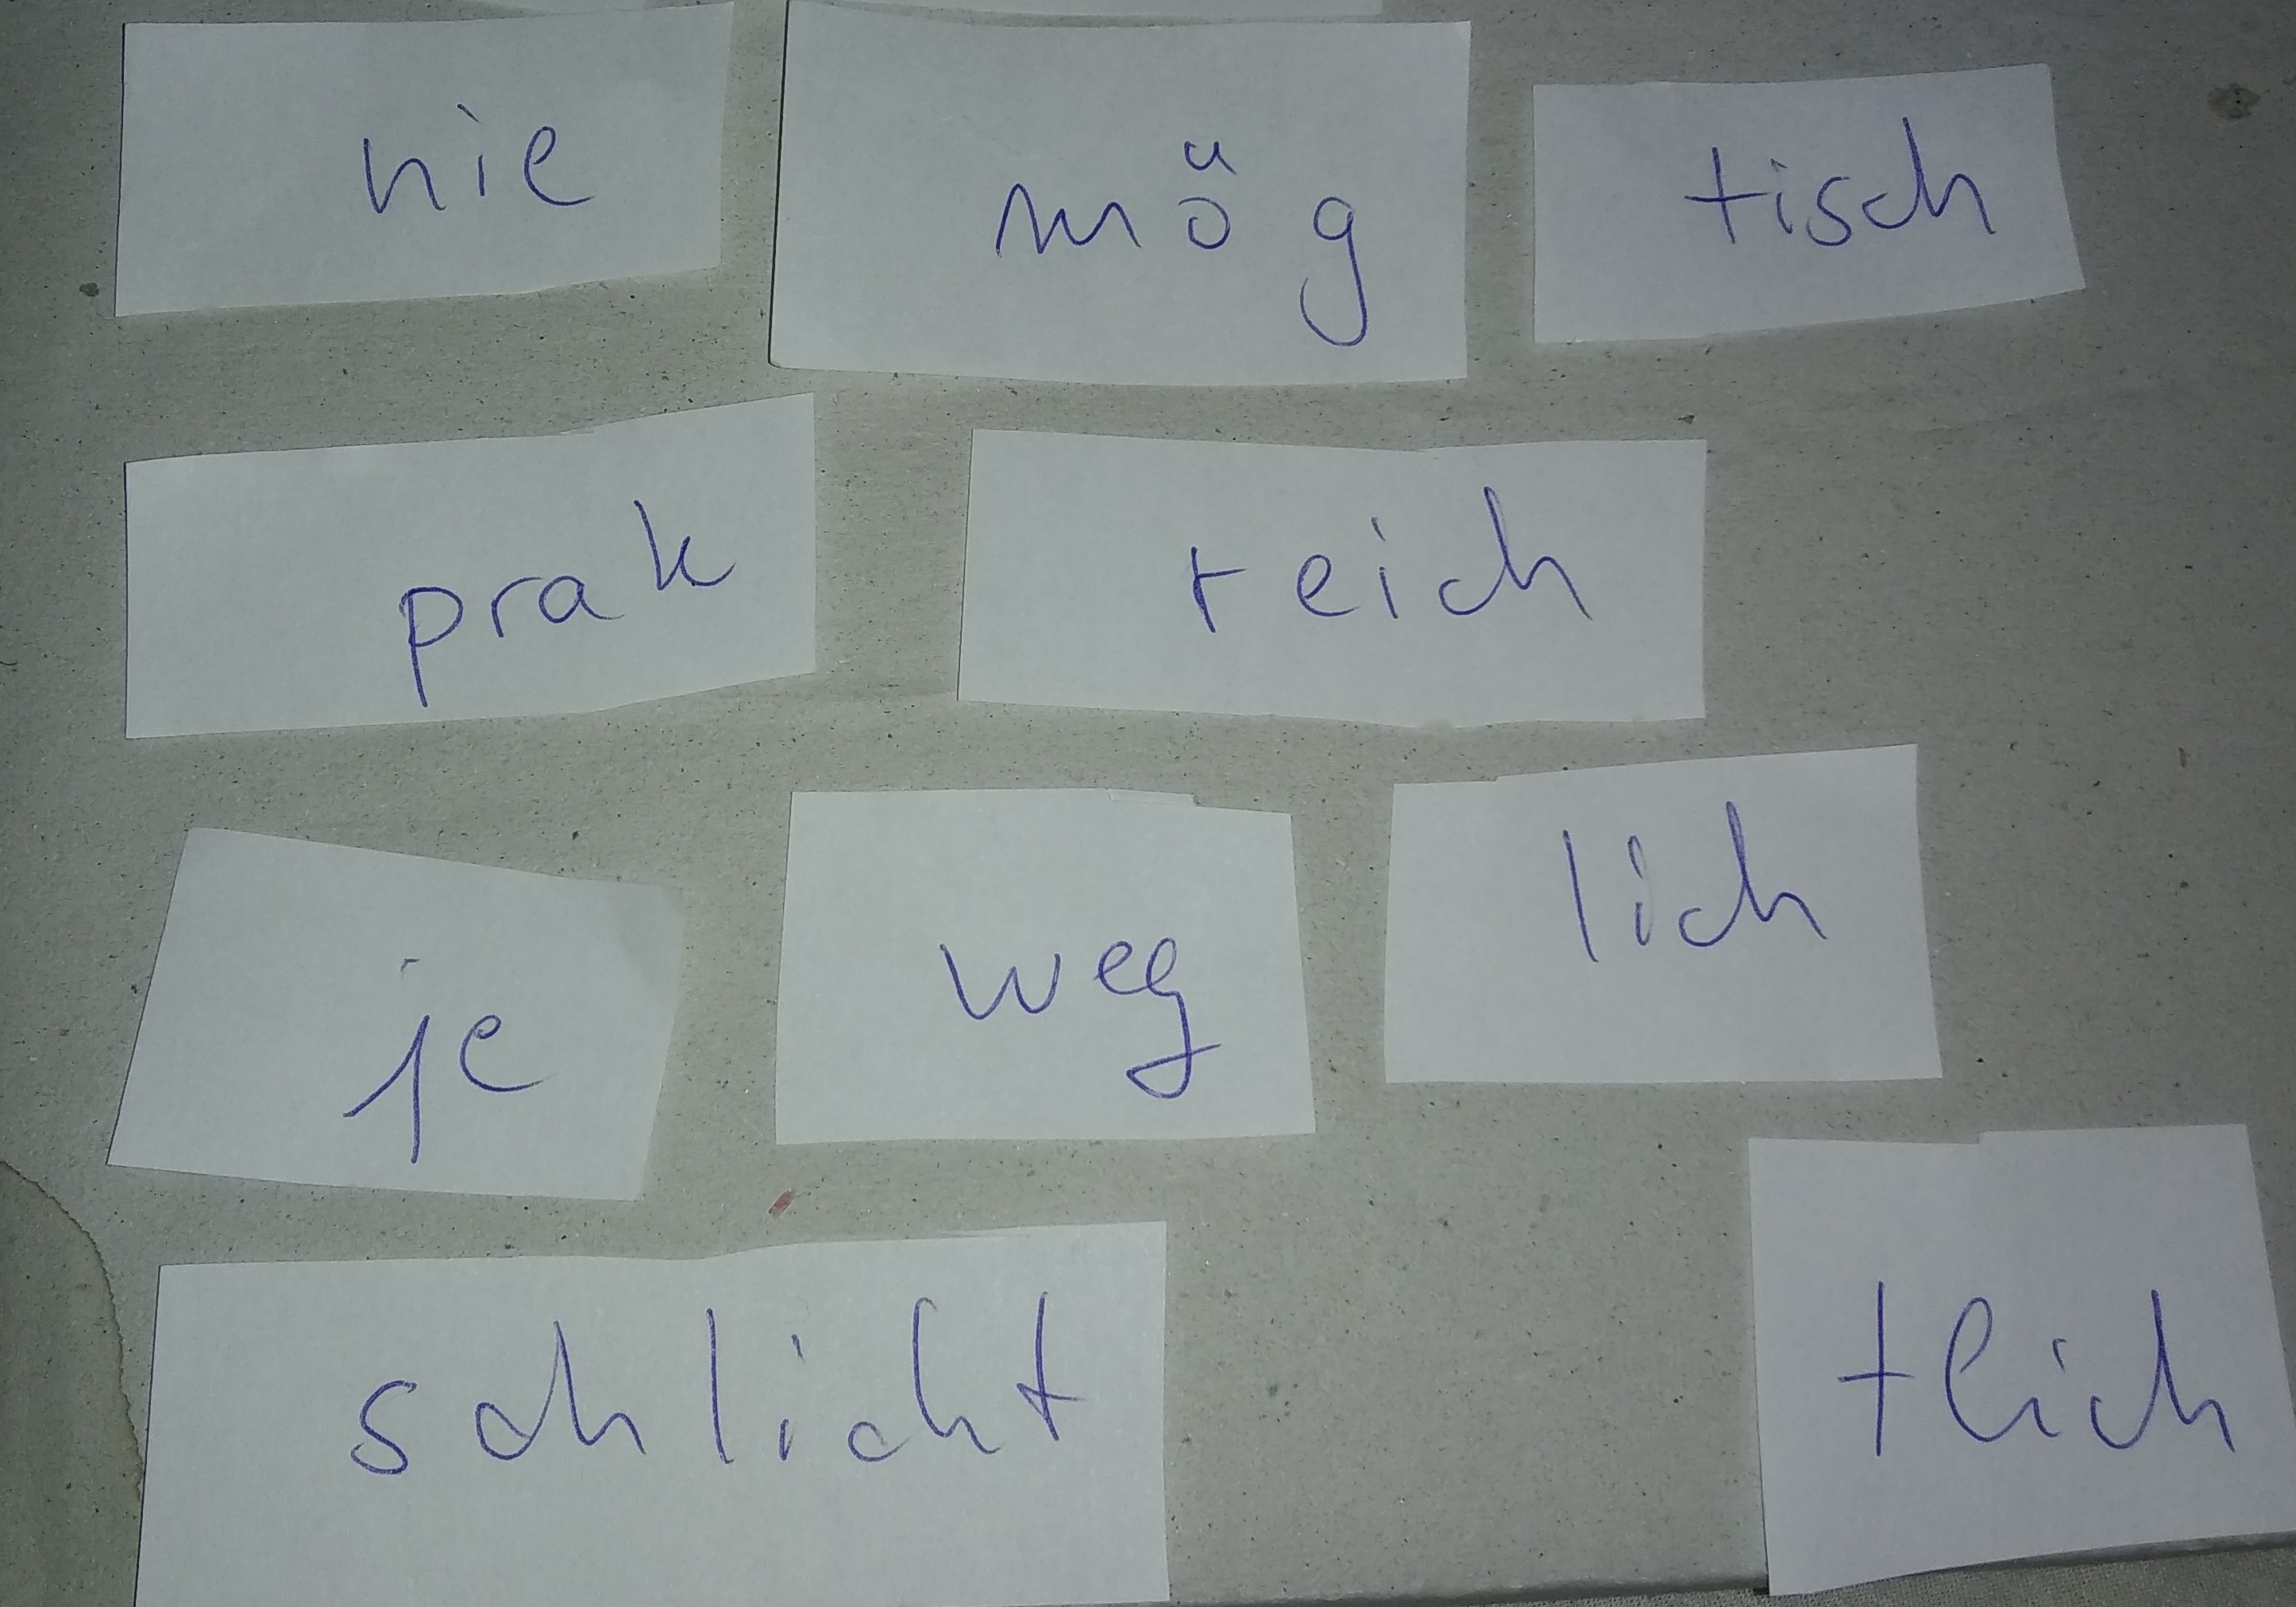 nie mög tisch
prak reich
je weg lich
schlicht tlich